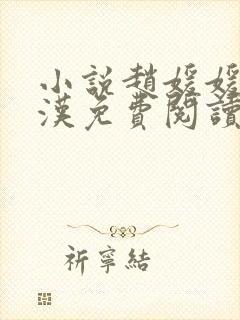 小說趙媛媛
漢免費閱讀
祈寧結